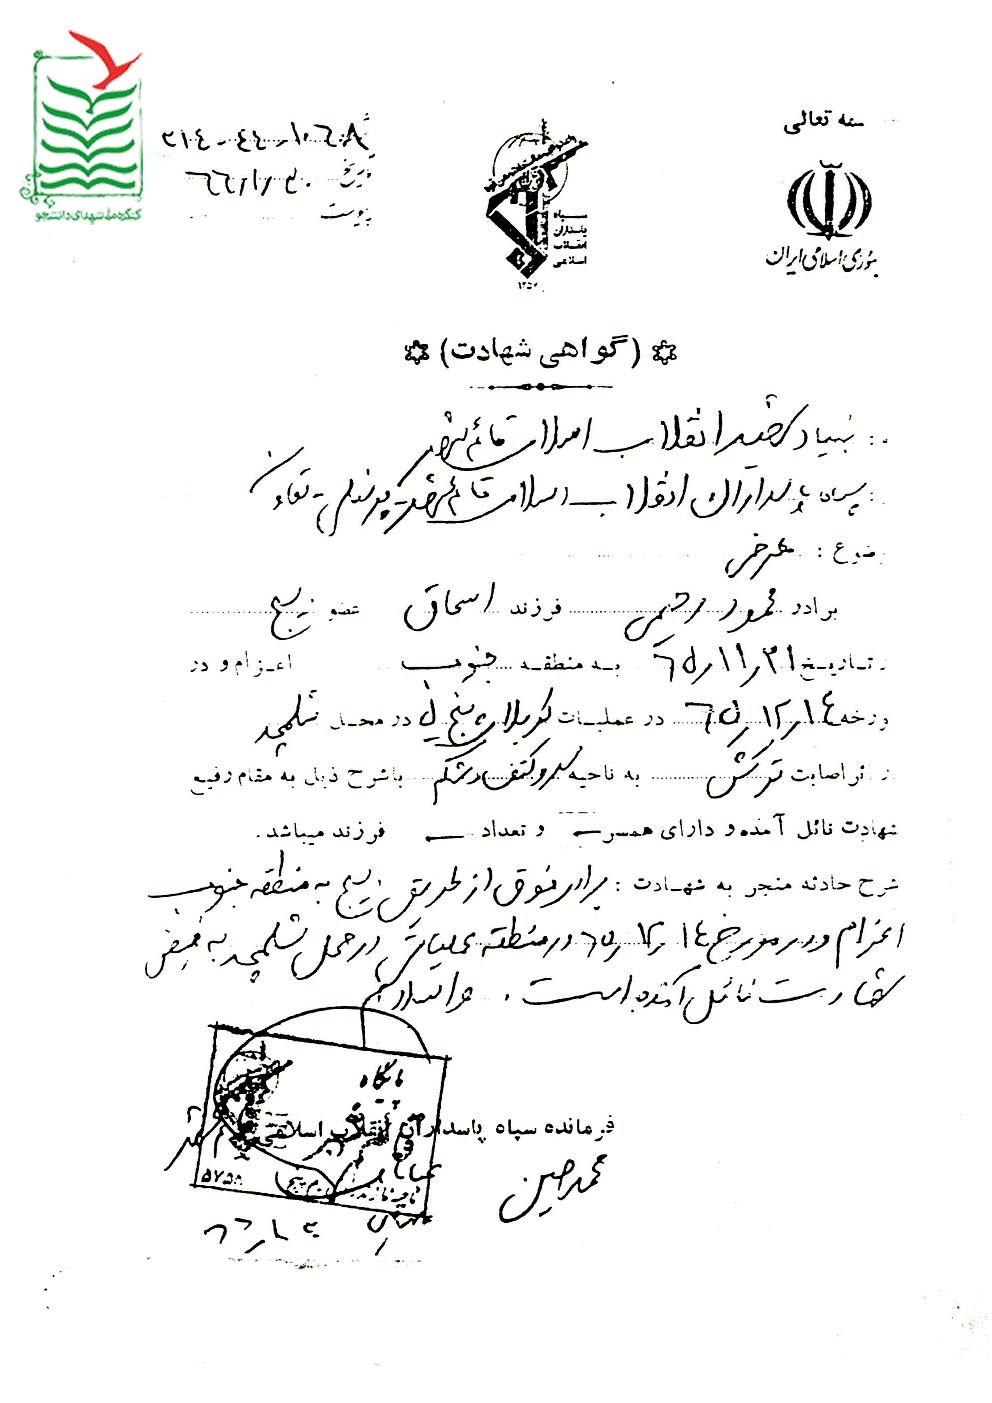 سمه تعالی
جمهوری اسلامی ایران
سپاه
پاسداران
انقلاب
اسلامی
۱۳۵۷
تاریخ ۶۶/۱/۳۰
پیوست
کنگره ملی شهدای دانشجو
(گواهی شهادت)
: بنیاد شهید انقلاب اسلامی قائم‌شهر
: سپاه پاسداران انقلاب اسلامی قائم‌شهر - پرسنلی - تعاون
موضوع : معرفی
برادر محمود رحیمی فرزند اسحاق عضو بسیج
در تاریخ ۶۵/۱۱/۲۱ به منطقه جنوب اعزام و در
مورخه ۶۵/۱۲/۱۴ در عملیات کربلای پنج در محل شلمچه
در اثر اصابت ترکش به ناحیه سر و کتف و شکم باشرح ذیل به مقام رفیع
شهادت نائل آمده و دارای همسر — و تعداد — فرزند میباشد.
شرح حادثه منجر به شهادت : برادر فوق از طریق بسیج به منطقه جنوب
اعزام و در مورخ ۶۵/۱۲/۱۴ در منطقه عملیاتی در محل شلمچه به فیض
شهادت نائل آمده است.
پایگاه
فرمانده سپاه پاسداران انقلاب اسلامی قائم شهر
۵۷۵۸